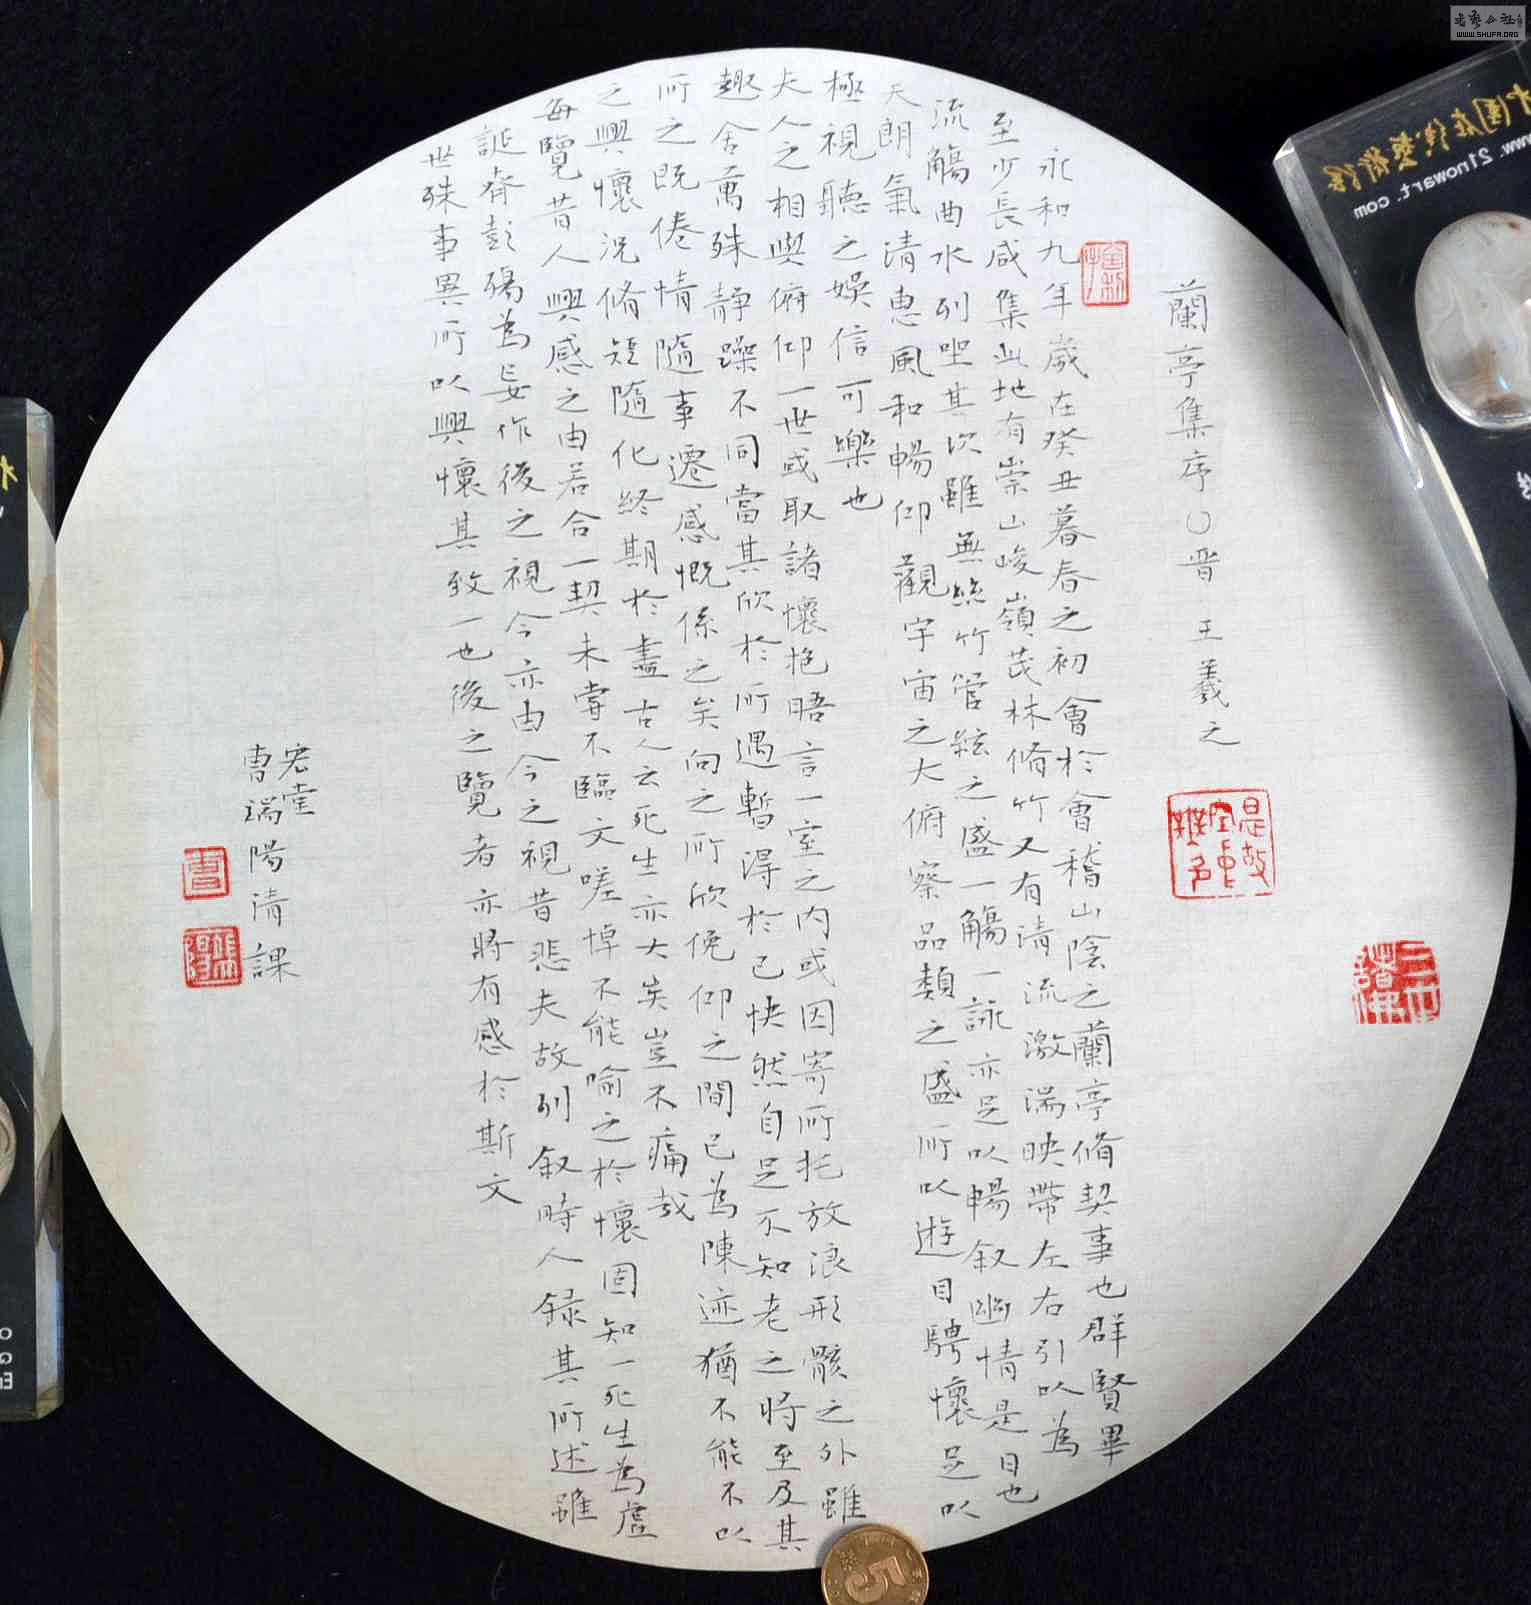 蘭亭集序○晋 王羲之
永和九年歲在癸丑暮春之初會於會稽山陰之蘭亭脩契事也群賢畢
至少長咸集此地有崇山峻嶺茂林脩竹又有清流激湍映帶左右引以為
流觴曲水列坐其次雖無絲竹管絃之盛一觴一詠亦足以暢叙幽情是日也
天朗氣清惠風和暢仰觀宇宙之大俯察品類之盛所以遊目騁懷足以
極視聽之娛信可樂也
夫人之相與俯仰一世或取諸懷抱晤言一室之内或因寄所托放浪形骸之外雖
趣舍萬殊静躁不同當其欣於所遇暫得於己快然自足不知老之將至及其
所之既倦情隨事遷感慨係之矣向之所欣俛仰之間已為陳迹猶不能不以
之興懷況脩短隨化終期於盡古人云死生亦大矣豈不痛哉
每覽昔人興感之由若合一契未嘗不臨文嗟悼不能喻之於懷固知一死生為虛
誕齊彭殤為妄作後之視今亦由今之視昔悲夫故列叙時人録其所述雖
世殊事異所以興懷其致一也後之覽者亦將有感於斯文
宏堂
曹端陽清課
是故
空中
無色
曹
WWW.SHUFA.ORG
www.21nowart.com
5